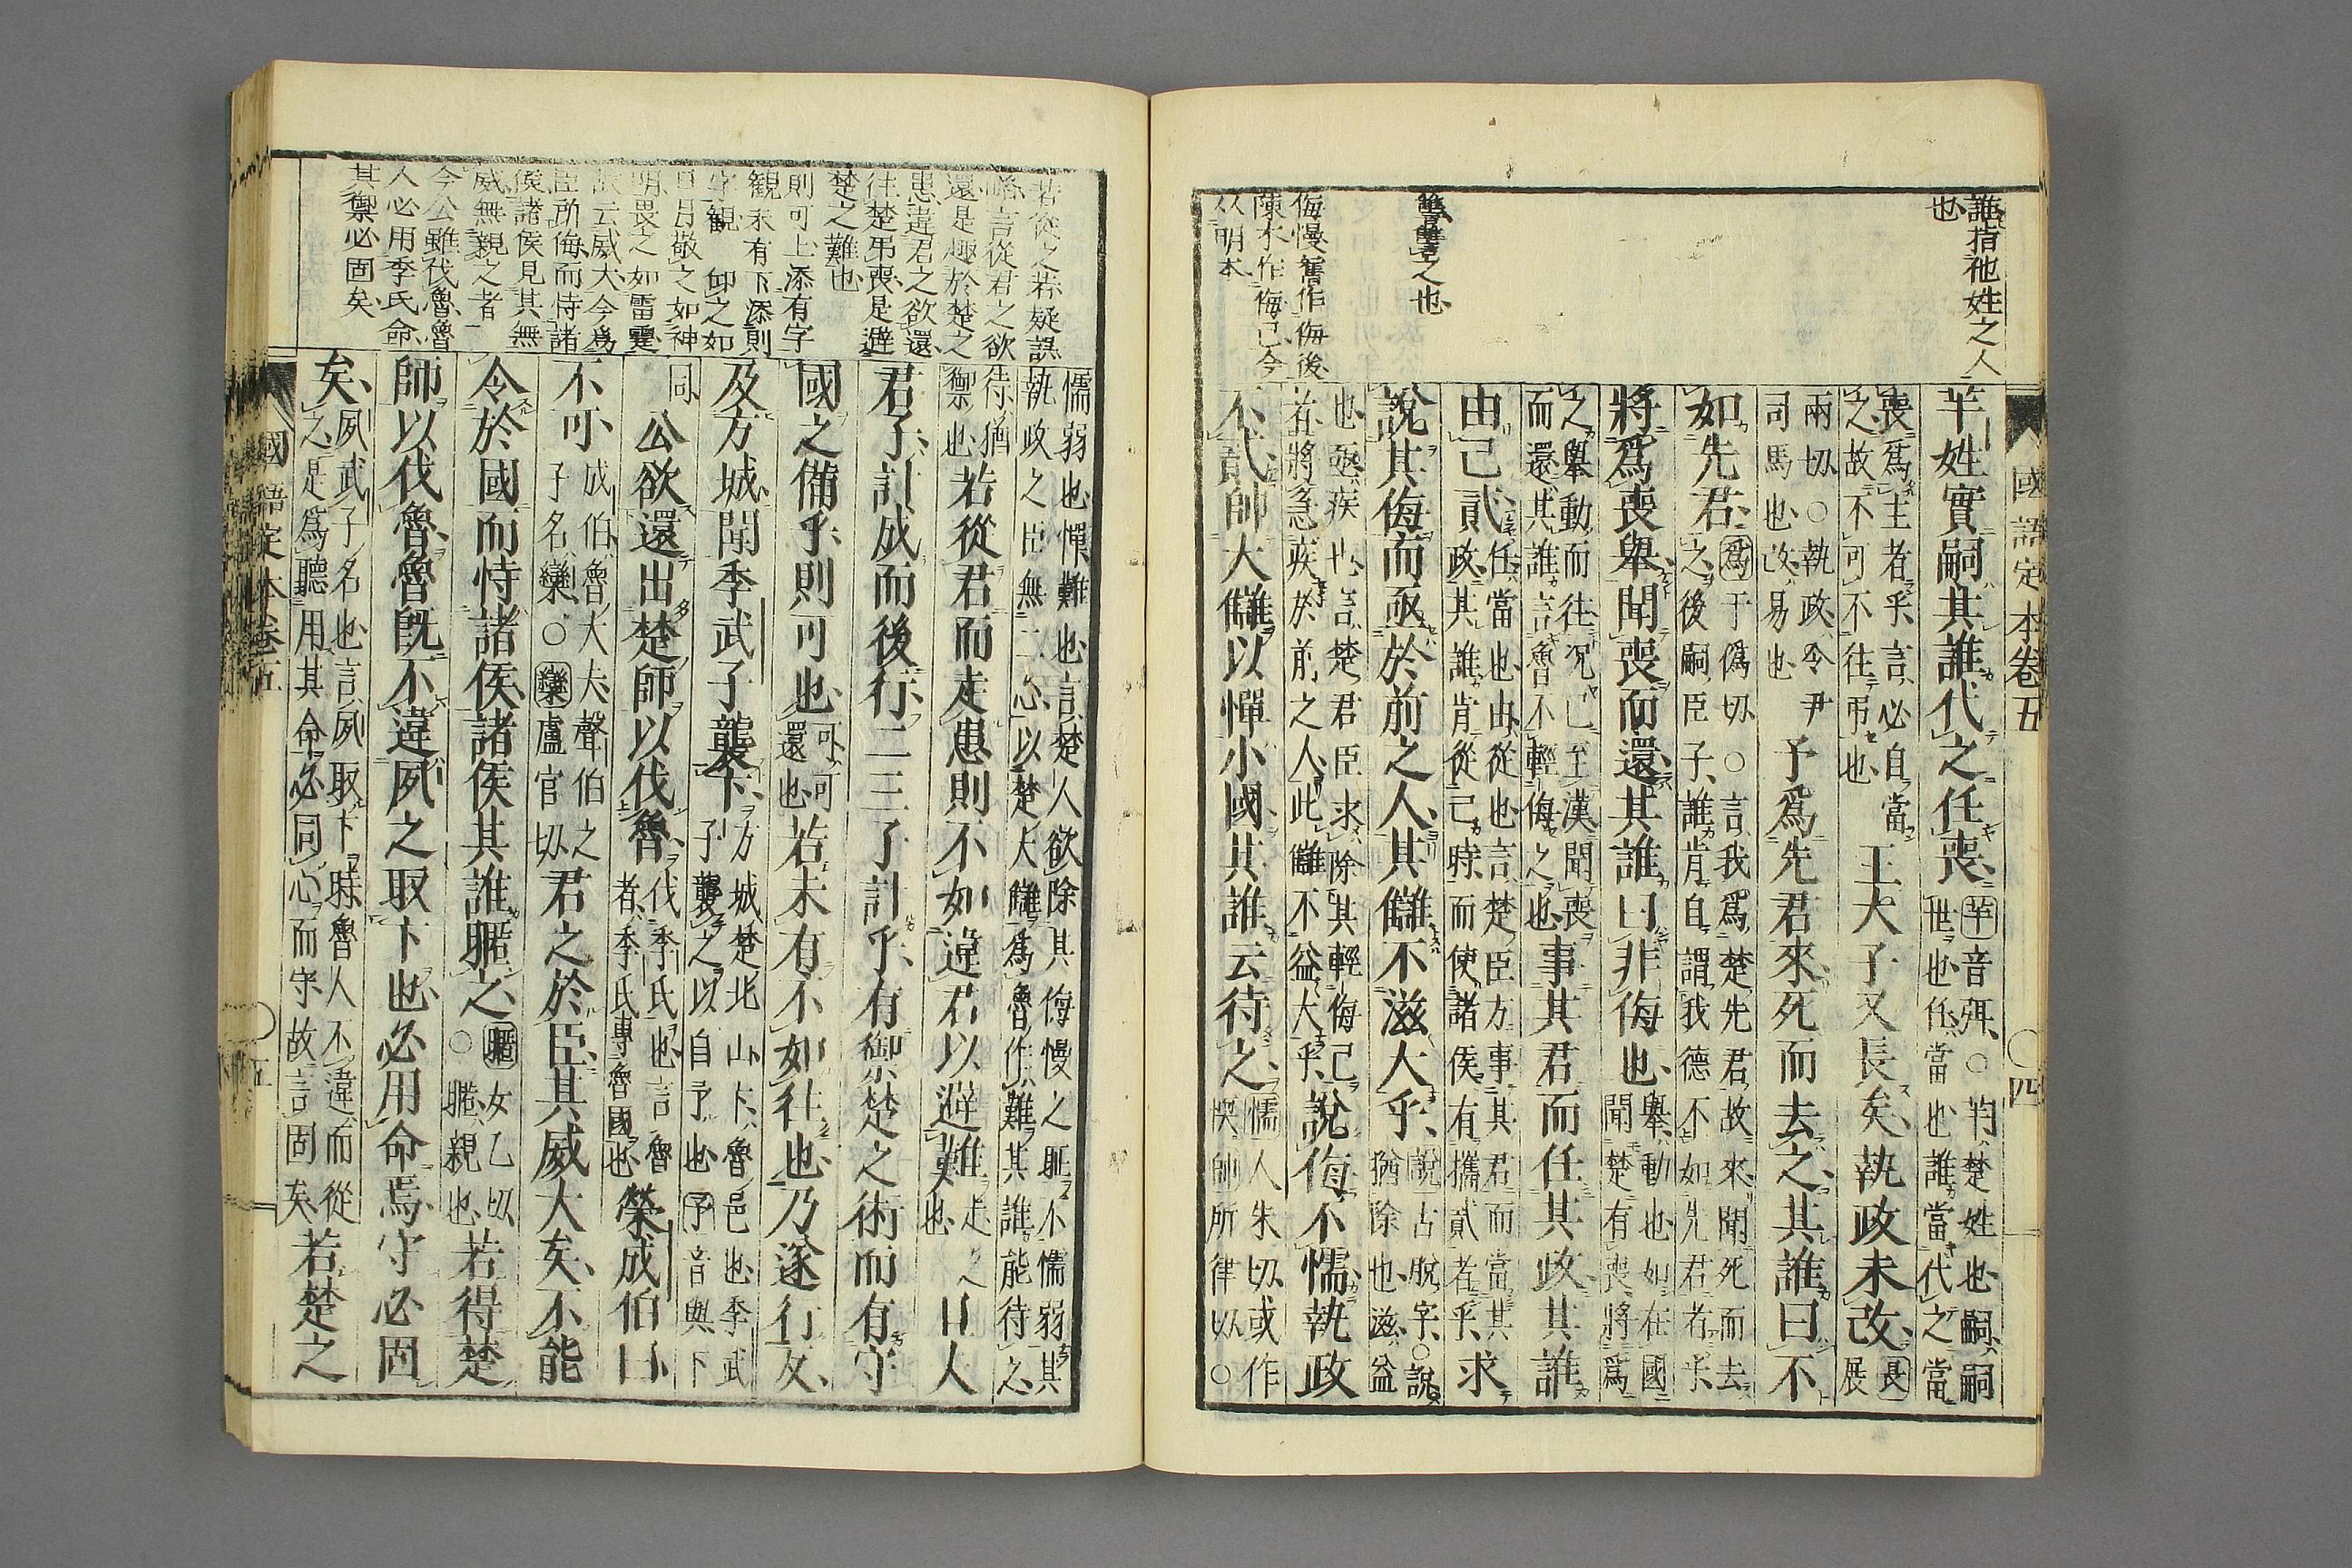 國語定本卷五　四
誰指他姓之人
也
之也
侮慢舊作侮後
陳本作侮已今
从明本
芊姓實嗣其誰代之任喪
芊音弭○芊楚姓也嗣嗣
世也任當也誰當代之當
喪爲主者乎言必自當
之故不可不往弔也
王大子又長矣執政未改
長展
兩切○執政令尹
司馬也改易也
予爲先君來死而去之其誰曰不
如先君
爲于僞切○言我爲楚先君故來聞死而去
之後嗣臣子誰肯自謂我德不如先君者乎
將爲喪舉聞喪而還其誰曰非侮也
舉動也如在國
聞楚有喪將爲
之舉動而往況已至漢聞喪
而還其誰言魯不輕侮之也
事其君而任其政其誰
由己貳
任當也由從也言楚臣方事其君而當其
政其誰肯從己時而使諸侯有攜貳者乎
求
說其侮而亟於前之人其讎不滋大乎
說古脫字○說
猶除也滋益
也亟疾也言楚君臣求除其輕侮己
者將急疾於前之人此讎不益大乎
說侮不懦執政
不貳帥大讎以憚小國其誰云待之
懦人朱切或作
偄帥所律切○
若從之若疑誤
言從君之欲
還是趣於楚之
患違君之欲還
往楚弔喪是避
楚之難也
則可上添有字
觀未有下添則
字觀　仰之如
日月敬之如神
明畏之如雷霆
故云威大今爲
臣所侮而恃諸
侯諸侯見其無
威無親之者
今公雖伐魯魯
人必用季氏命
其禦必固矣
懦弱也憚難也言楚人欲除其侮慢之恥不懦弱其
執政之臣無二心以楚大讎爲魯作難其誰能待之
待猶
禦也
若從君而走患則不如違君以避難
走之
也
且夫
君子計成而後行二三子計乎有禦楚之術而有守
國之備乎則可也
可可
還也
若未有不如往也乃遂行反
及方城聞季武子襲卞
方城楚北山卞魯邑也季武
子襲之以自予也予音與下
同
公欲還出楚師以伐魯
伐季氏也言魯
者季氏專魯國也
榮成伯曰
不可
成伯魯大夫聲伯之
子名欒○欒盧官切
君之於臣其威大矣不能
令於國而恃諸侯諸侯其誰暱之
暱女乙切
○暱親也
若得楚
師以伐魯魯旣不違夙之取卞也必用命焉守必固
矣
夙武子名也言夙取卞時魯人不違而從
之是爲聽用其命必同心而守故言固矣
若楚之
國語定本卷五　五